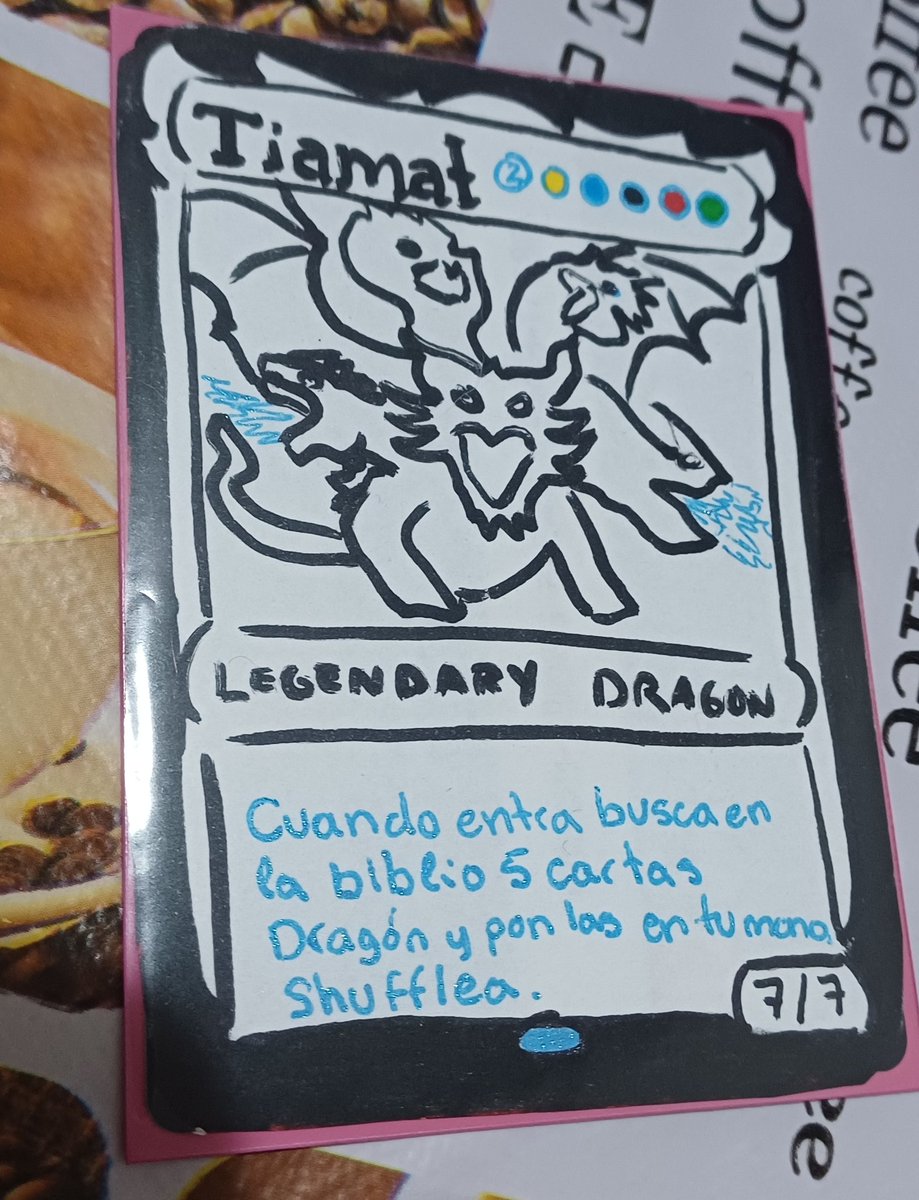 Tiamat 2
LEGENDARY DRAGON
Cuando entra busca en
la biblio 5 cartas
Dragón y pon las en tu mano
Shufflea.
7/7
coffee